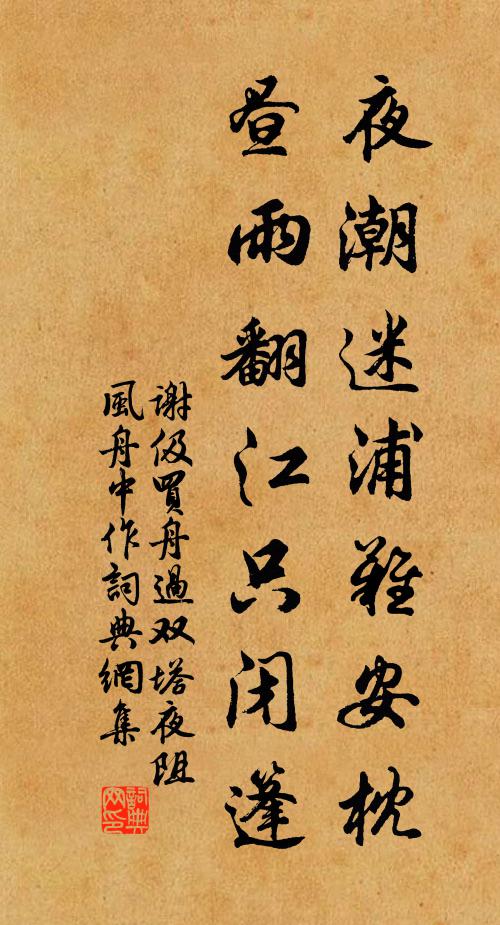 夜潮迷浦難安枕
昼雨翻江只闭篷
謝伋買舟過双塔夜阻
風舟中作詞典網集
詞典
网印